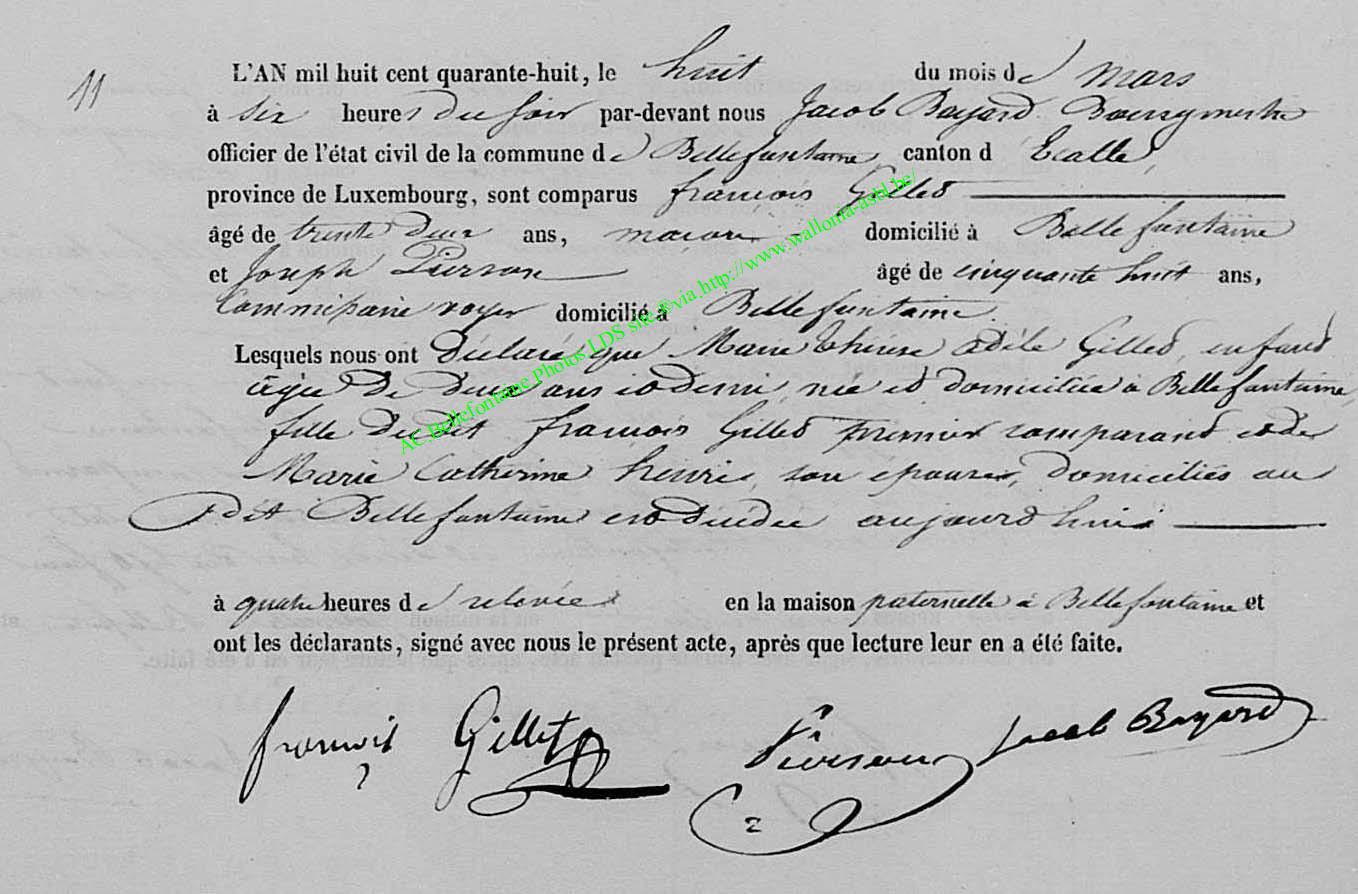 11
L'AN mil huit cent quarante-huit, le huit du mois de mars
à six heures du soir par-devant nous Jacob Bayard Bourgmestre
officier de l'état civil de la commune de Bellefontaine, canton d Etalle,
province de Luxembourg, sont comparus françois Gillet
âgé de trente deux ans, macon domicilié à Bellefontaine
et Joseph Pierson âgé de cinquante huit ans,
Commissaire voyer domicilié à Bellefontaine.
Lesquels nous ont déclaré que Marie thérese Adèle Gillet, enfant
agée de deux ans et demi, née et domiciliée à Bellefontaine,
fille dudit françois Gillet premier comparant et de
Marie Catherine henri, son epouse, domiciliés au
dit Bellefontaine est décédée aujourd'hui
à quatre heures de relevée en la maison paternelle à Bellefontaine et
ont les déclarants, signé avec nous le présent acte, après que lecture leur en a été faite.
françois Gillet Pierson Jacob Bayard
AC Bellefontaine Photos LDS site @via http://www.wallonia-asbl.be/